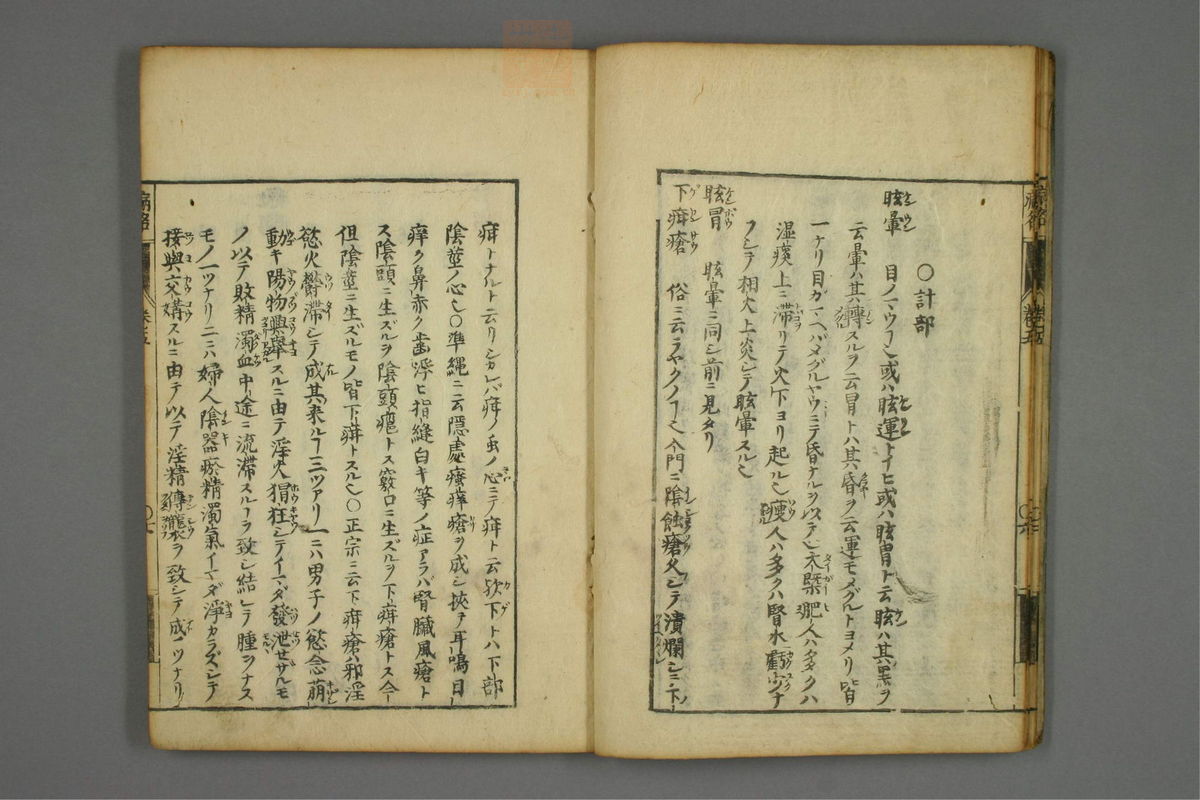 〇計部
眩暈 目ノマウ﹁也或ハ眩運トイヒ或ハ眩冒ト云眩ハ其黒ヲ
云暈ハ其轉スルヲ云冒トハ其昏ヲ云運モメグルトヨメリ皆
一ナリ目ガマヘバメグルヤウニテ昏ナルヲ以テ也大槩肥人ハ多クハ
湿痰上ニ滞リテ火下ヨリ起ル也痩人ハ多クハ腎水虧少ナ
フシテ相火上炎シテ眩暈スル也
眩冒 眩暈ニ同シ前ニ見タリ
下疳瘡 俗ニ云ラヤクノ﹁也入門ニ陰蝕瘡久シテ潰爛シ下
疳トナルト云リシカレバ疳ノ虫ノ心ニテ疳ト云欤下トハ下部
陰莖ノ心也〇準縄ニ云隠處癢痒瘡ヲ成シ挾テ耳鳴目
痒ク鼻赤ク歯浮ヒ指縫白キ等ノ症アラバ腎臓風瘡ト
ス陰頭ニ生ズルヲ陰頭瘡トス竅口ニ生ズルヲ下疳瘡トス今
但陰莖ニ生ズルモノ皆下疳トスル也〇正宗ニ云下疳瘡ハ邪淫
慾火鬱滞シテ成其来ル﹁三ツアリ一ニハ男子ノ慾念萌
動キ陽物興舉スルニ由テ淫火猖狂シテイマダ發泄セサルモ
ノ以テ敗精濁血中途ニ流滞スル﹁ヲ致シ結シテ腫ヲナス
モノ一ツナリ二ニハ婦人陰器瘀精濁氣イマダ淨カラズシテ
接與交媾スルニ由テ以テ淫精傳襲ヲ致シテ成ノツナリ